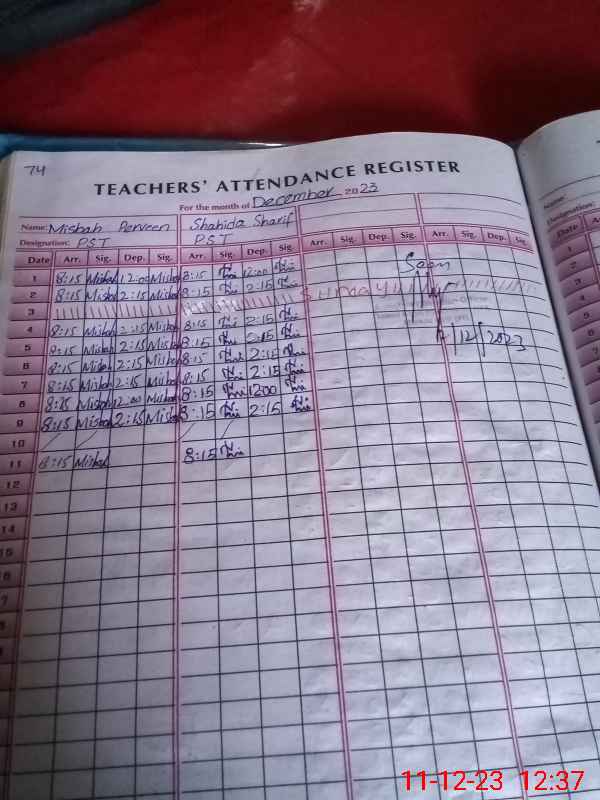 74
TEACHERS' ATTENDANCE REGISTER
For the month of December 2023
Name: Misbah Perveen Shahida Sharif
Designation: PST PST
Date Arr. Sig. Dep. Sig. Arr. Sig. Dep. Sig. Arr. Sig. Dep. Sig. Arr. Sig. Dep. Sig.
Seen
1 8:15 Misbah 12:00 Misbah 8:15 12:00
2 8:15 Misbah 2:15 Misbah 8:15 2:15
3 SUNDAY
4 8:15 Misbah 2:15 Misbah 8:15 2:15
5 8:15 Misbah 2:15 Misbah 8:15 2:15
6 8:15 Misbah 2:15 Misbah 8:15 2:15
7 8:15 Misbah 2:15 Misbah 8:15 2:15
8 8:15 Misbah 12:00 Misbah 8:15 1200
9 8:15 Misbah 2:15 Misbah 8:15 2:15
10
11 8:15 Misbah 8:15
12
13
14
15
16
17
18
19
Name:
Designation:
Date
1
2
3
4
5
6
7
8
9
10
11
11-12-23 12:37